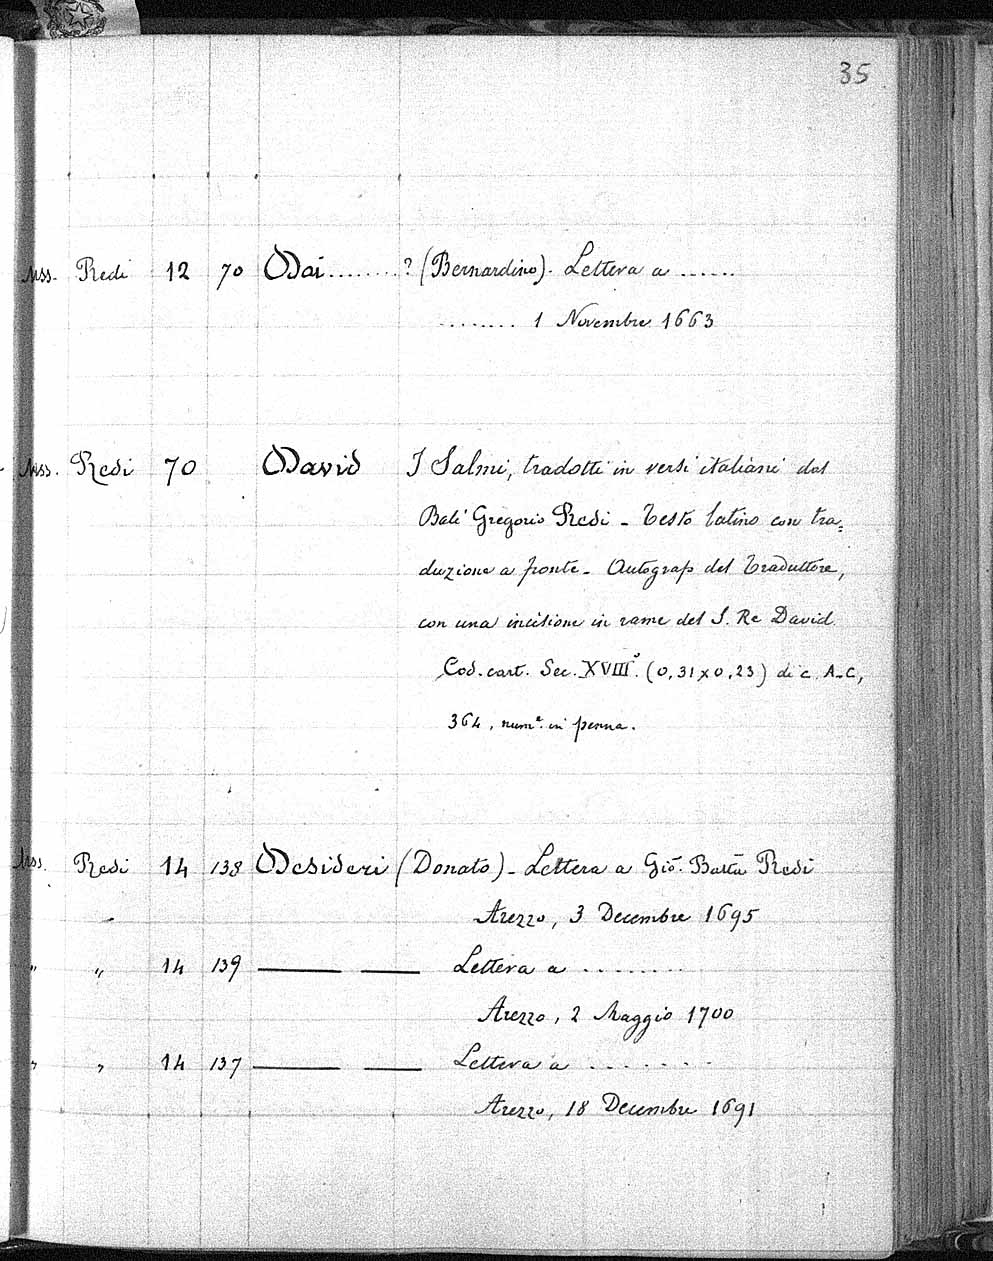 35
Mss. Redi 12 70 Dai........? (Bernardino). Lettera a ......
........ 1 Novembre 1663
Mss. Redi 70 David I Salmi, tradotti in versi italiani dal
Balì Gregorio Redi - Testo latino con tra=
duzione a fronte - Autografo del traduttore,
con una incisione in rame del S. Re David
Cod. cart. Sec. XVIII°. (0,31 x 0,23) di c. A-C,
364, numte. in penna.
Mss. Redi 14 138 Desideri (Donato) - Lettera a Gio. Batta Redi
Arezzo, 3 Decembre 1695
" " 14 139 —— —— Lettera a ........
Arezzo, 2 Maggio 1700
" " 14 137 —— —— Lettera a .......
Arezzo, 18 Decembre 1691